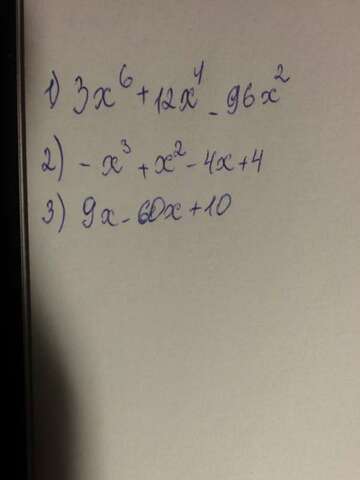 1) 3x⁶ + 12x⁴ - 96x²
2) - x³ + x² - 4x + 4
3) 9x - 60x + 10